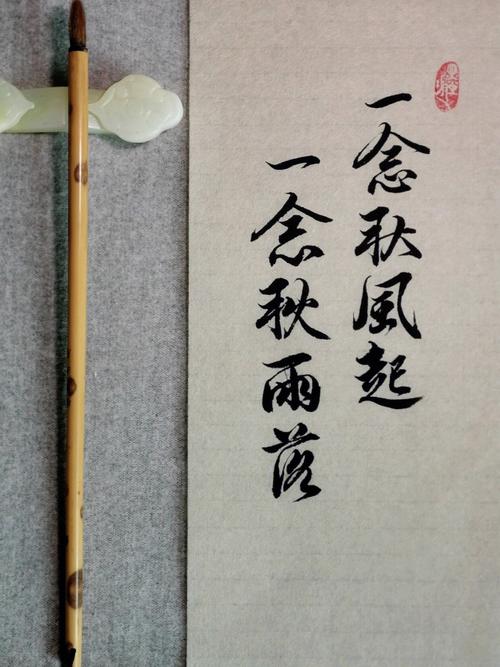 一念秋風起
一念秋雨落